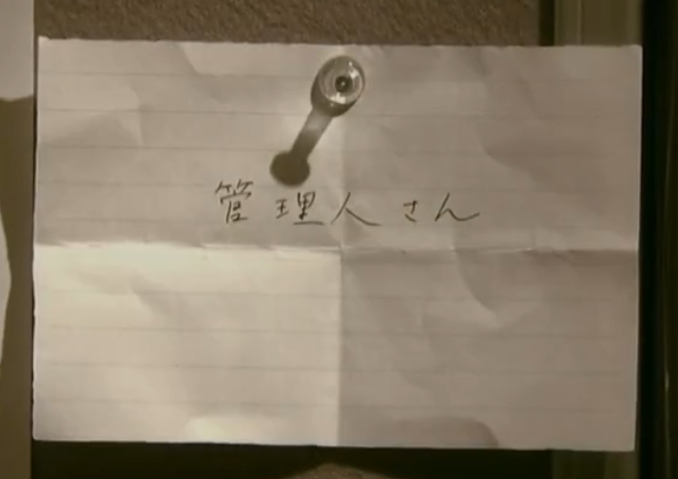 管理人さん